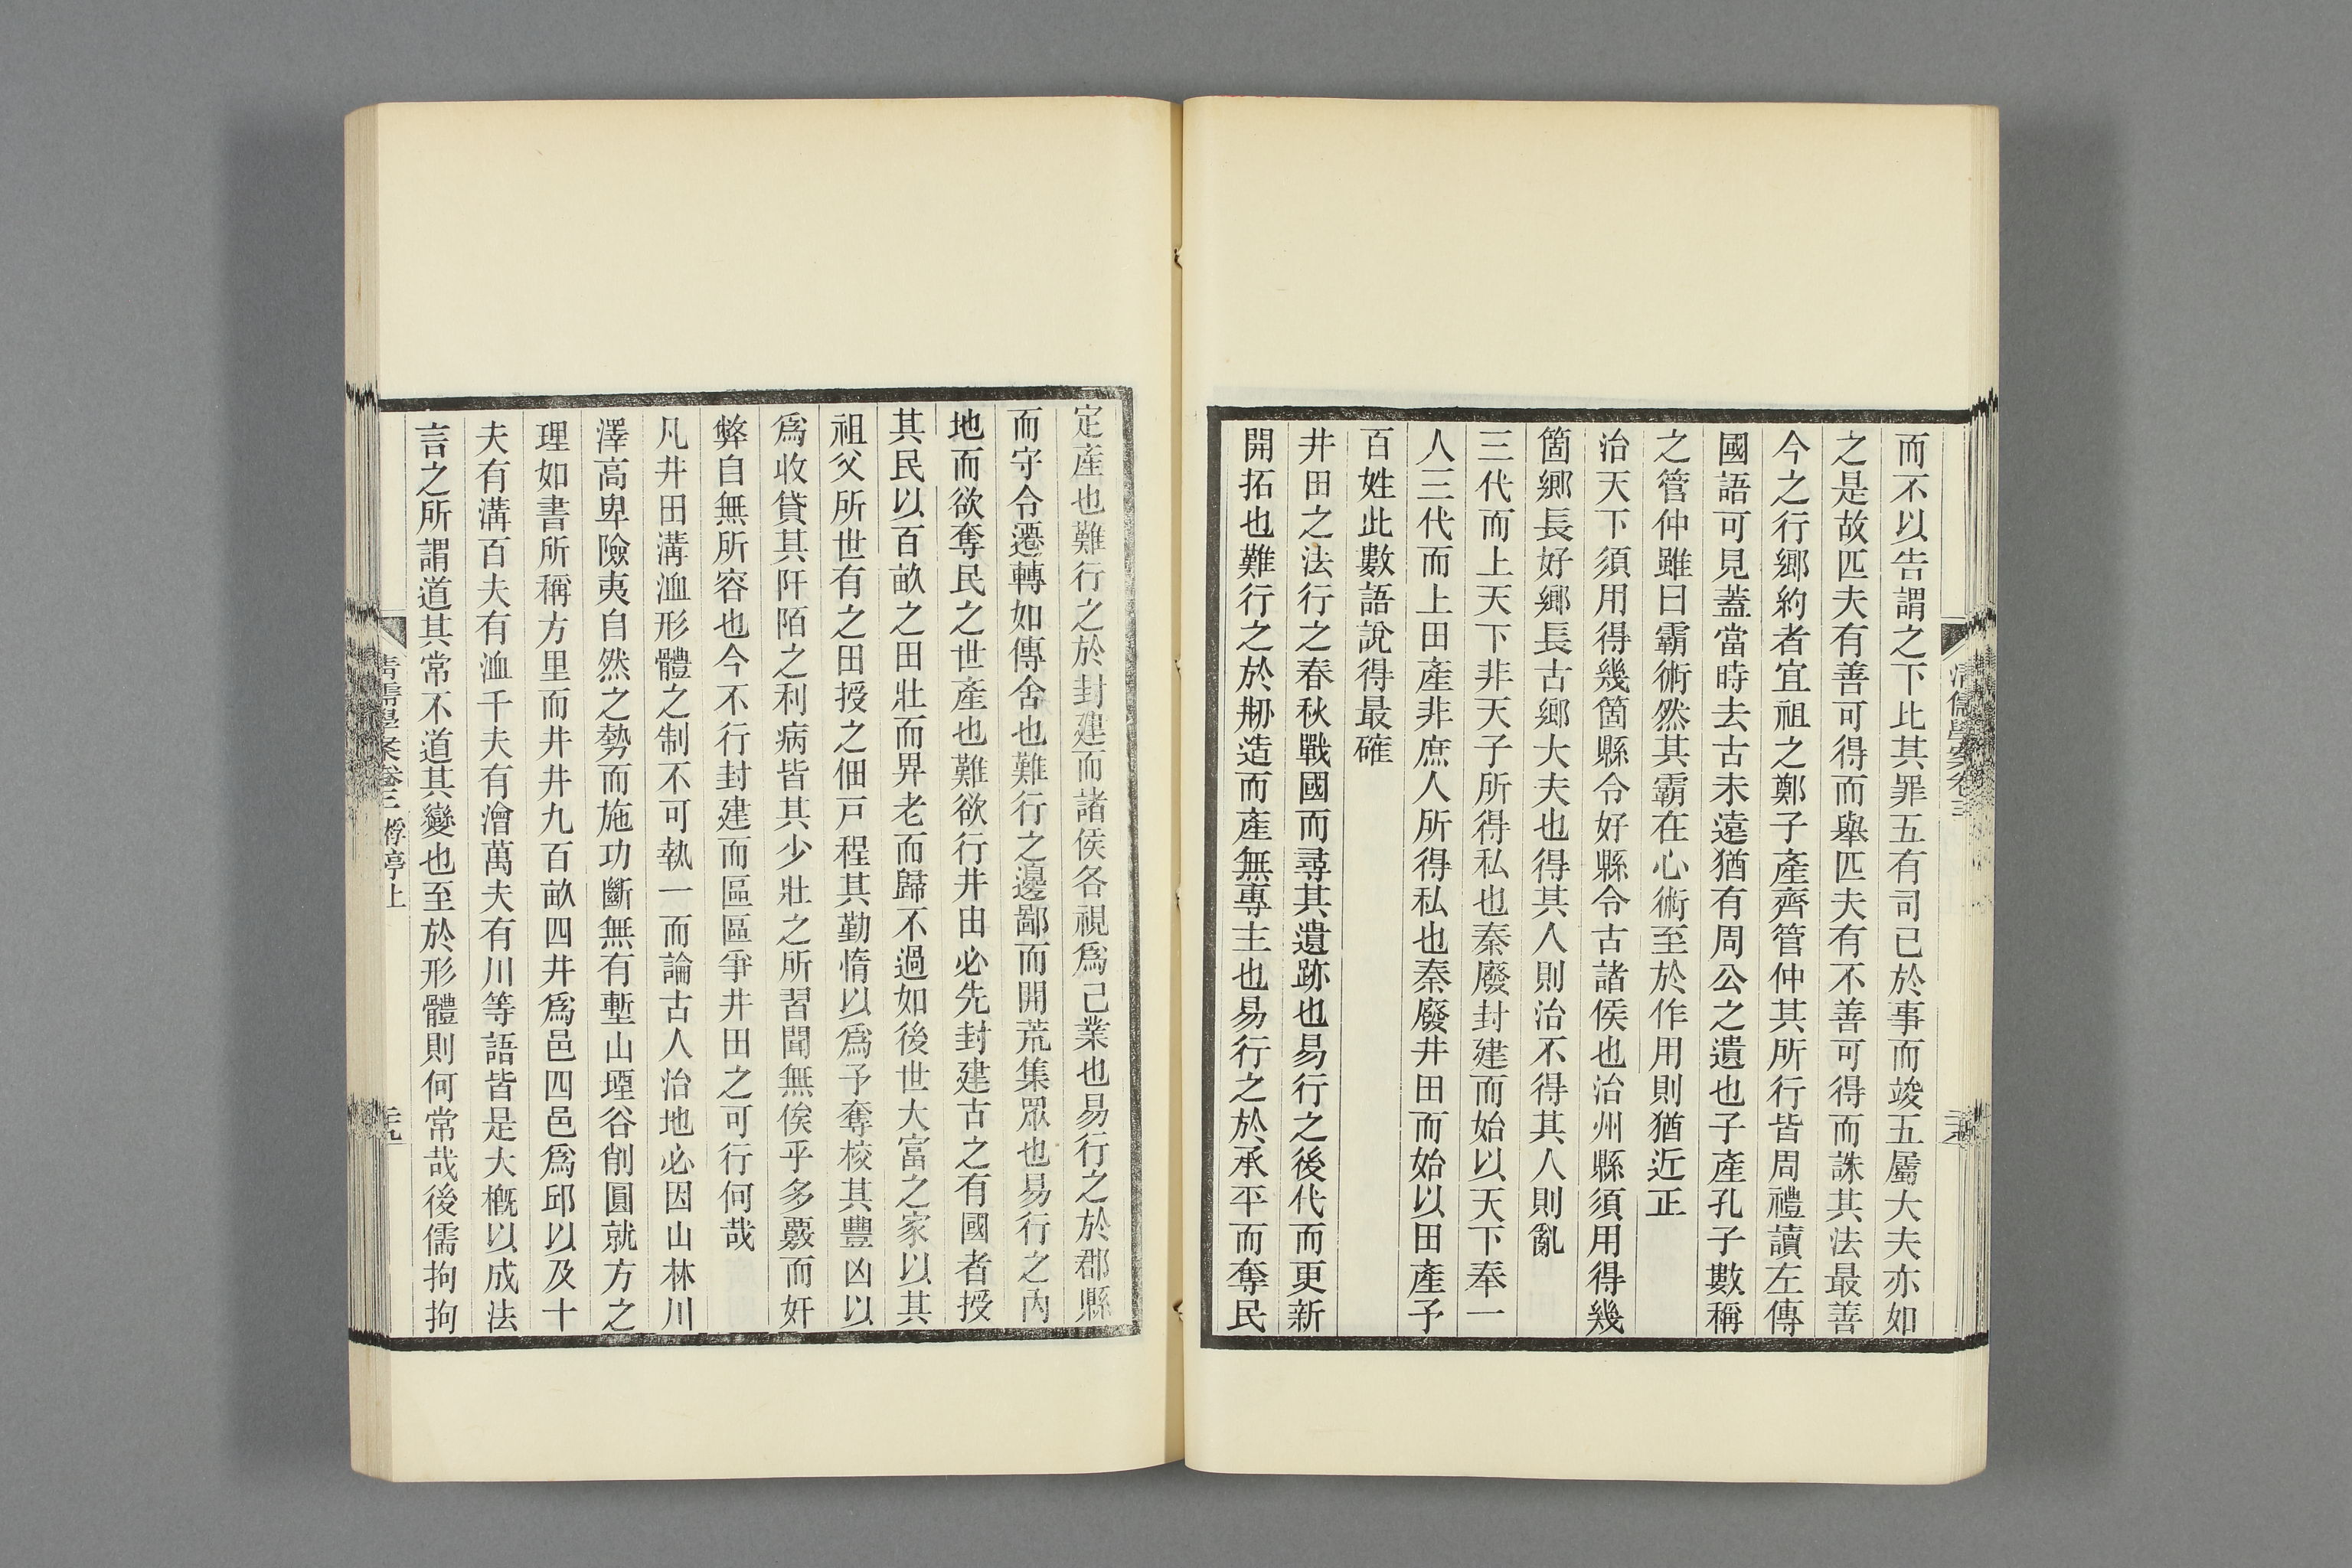 而不以告謂之下比其罪五有司已於事而竣五屬大夫亦如
之是故匹夫有善可得而舉匹夫有不善可得而誅其法最善
今之行鄉約者宜祖之鄭子產齊管仲其所行皆周禮讀左傳
國語可見蓋當時去古未遠猶有周公之遺也子產孔子數稱
之管仲雖曰霸術然其霸在心術至於作用則猶近正
治天下須用得幾箇縣令好縣令古諸侯也治州縣須用得幾
箇鄉長好鄉長古鄉大夫也得其人則治不得其人則亂
三代而上天下非天子所得私也秦廢封建而始以天下奉一
人三代而上田產非庶人所得私也秦廢井田而始以田產予
百姓此數語說得最確
井田之法行之春秋戰國而尋其遺跡也易行之後代而更新
開拓也難行之於刱造而產無專主也易行之於承平而奪民
清儒學案卷三
定產也難行之於封建而諸侯各視爲己業也易行之於郡縣
而守令遷轉如傳舍也難行之邊鄙而開荒集眾也易行之內
地而欲奪民之世產也難欲行井田必先封建古之有國者授
其民以百畝之田壯而畀老而歸不過如後世大富之家以其
祖父所世有之田授之佃戶程其勤惰以爲予奪校其豐凶以
爲收貸其阡陌之利病皆其少壯之所習聞無俟乎多覈而奸
弊自無所容也今不行封建而區區爭井田之可行何哉
凡井田溝洫形體之制不可執一而論古人治地必因山林川
澤高卑險夷自然之勢而施功斷無有塹山堙谷削圓就方之
理如書所稱方里而井井九百畝四井爲邑四邑爲邱以及十
夫有溝百夫有洫千夫有澮萬夫有川等語皆是大概以成法
言之所謂道其常不道其變也至於形體則何常哉後儒拘拘
清儒學案卷三 桴亭上